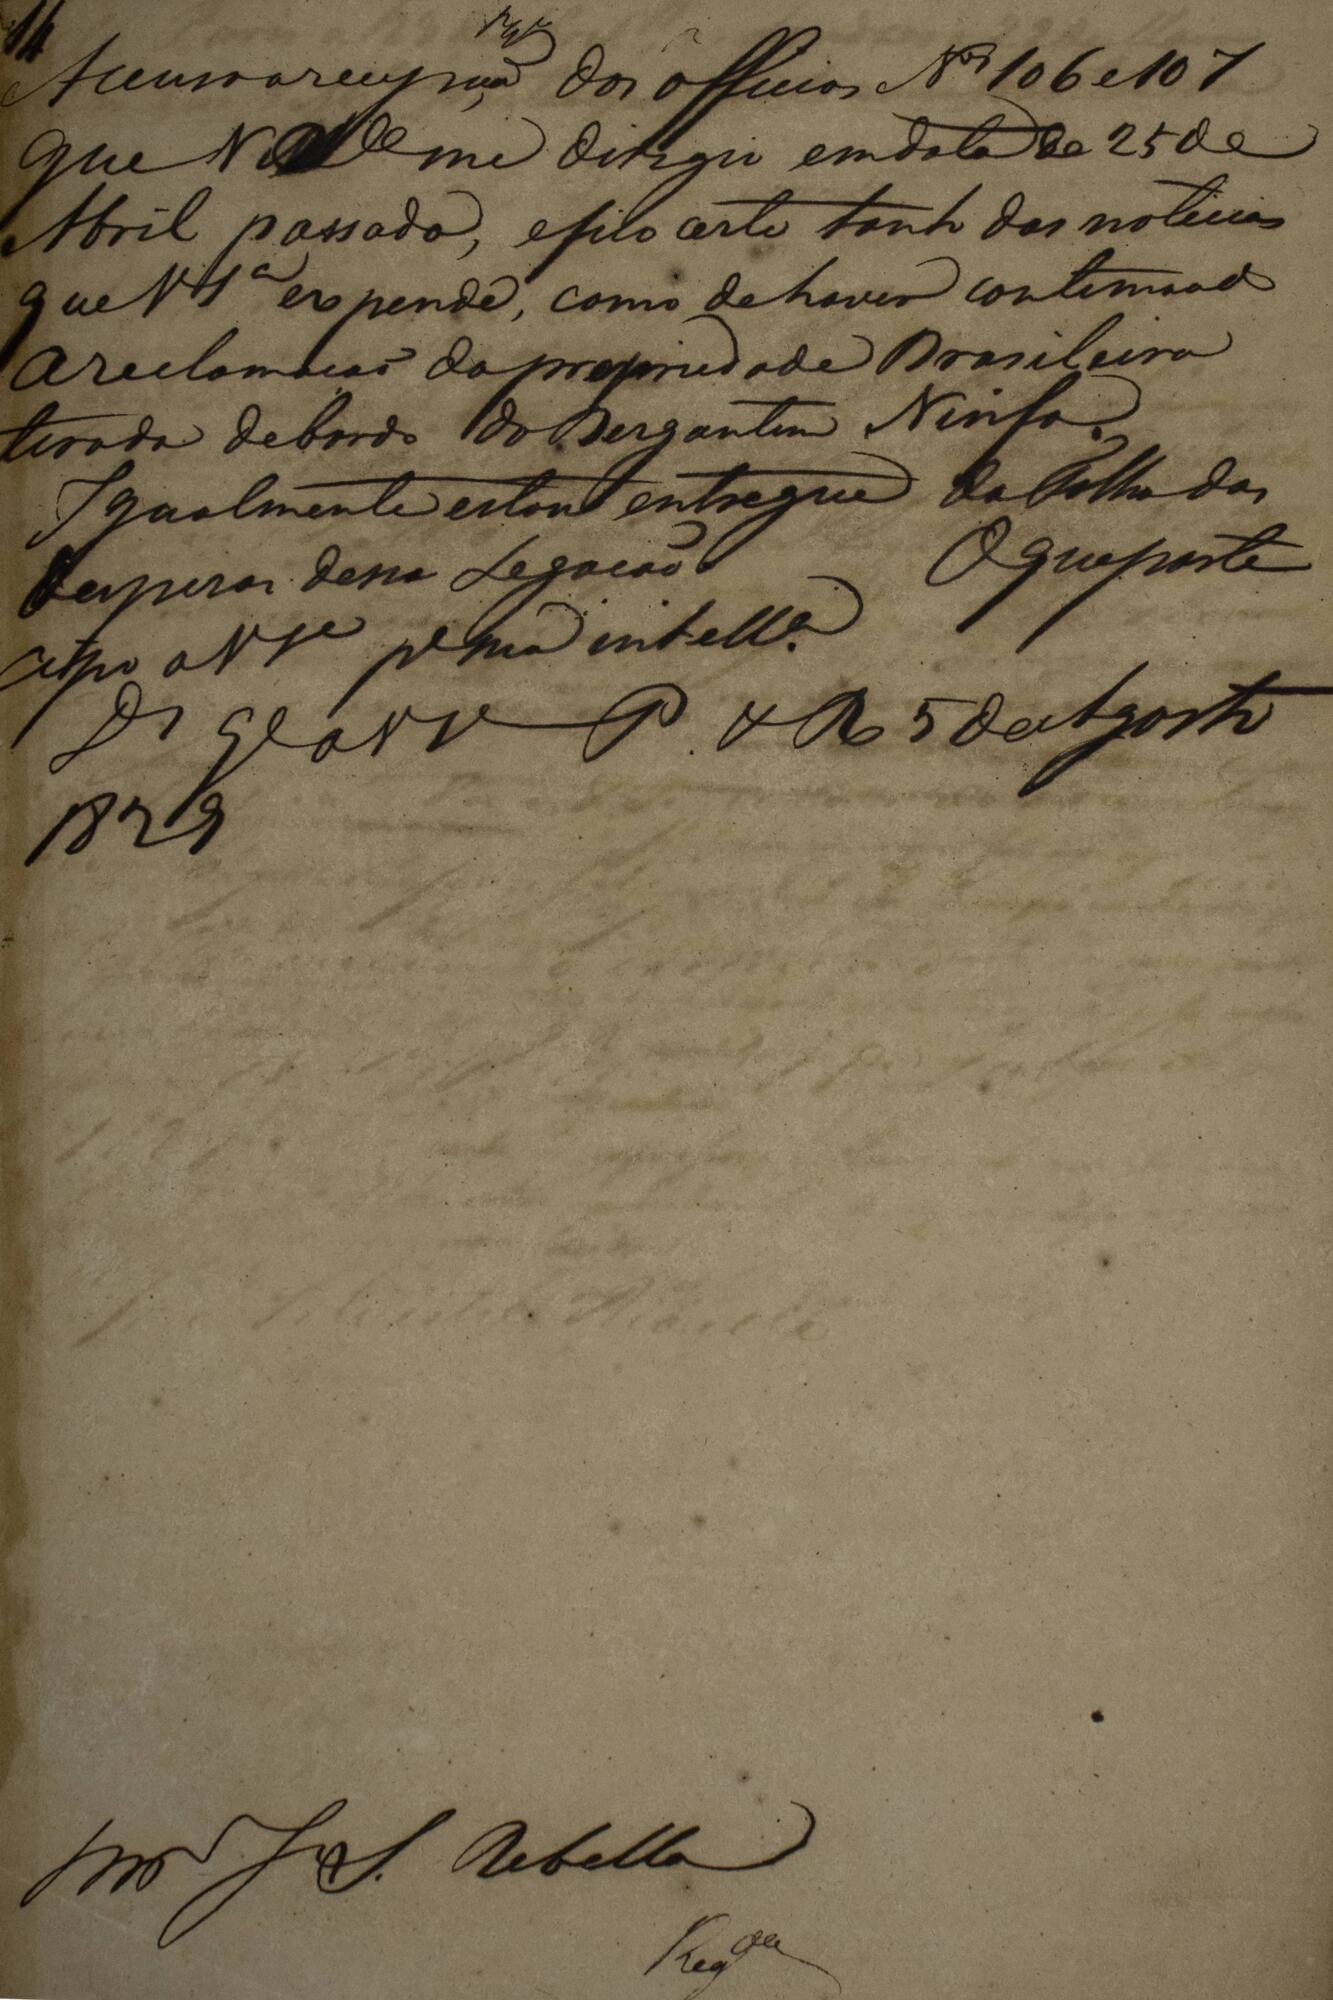 14
Accuso a recepção dos officios Nos 106 e 107
que V me dirigio em data de 25 de
Abril passado, e fico certo tanto das noticias
que V Sa expende, como de haver continuado
a reclamação da propriedade Brasileira
tirada de bordo do Bergantim Ninfa.
Igualmente estou entregue da Folha das
Despezas dessa Legação O que parte
cipo a V Sa pa sua intella.
Ds Ge a V Sa P. 5 de Agosto
1829
Snr J S. Rebello
Regda